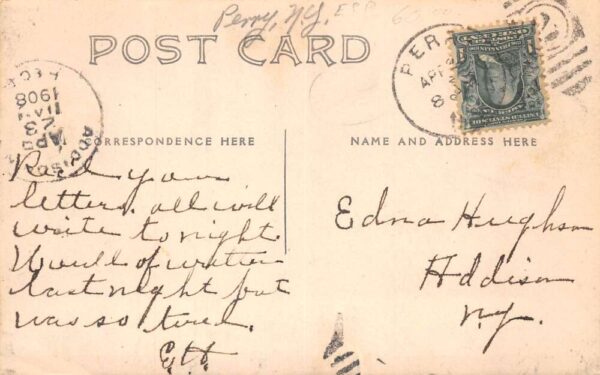 Perry, N.Y.
POST CARD
PER
APR
8
ADDIS
APR
11 AM
1908
REC'D
CORRESPONDENCE HERE
NAME AND ADDRESS HERE
Rec'd your
letters. all will
write to night.
Would of written
last night but
was so tired.
Edna Hughson
Addison
N.Y.